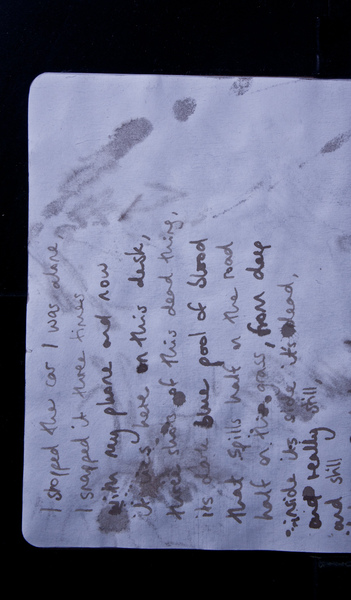 I stopped the car I was alone
I snapped it three times
with my phone and now
here on this desk,
three shots of this dead thing,
its dark blue pool of blood
that spills half on the road
half on the grass, from deep
inside its side its dead,
and really still,
and still